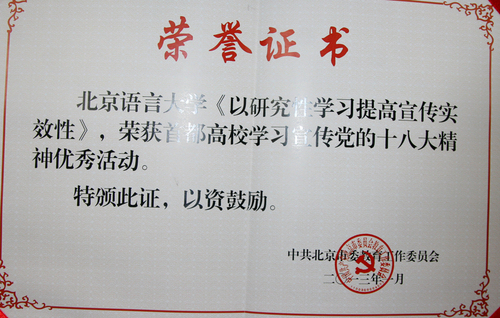 荣誉证书
北京语言大学《以研究性学习提高宣传实
效性》，荣获首都高校学习宣传党的十八大精
神优秀活动。
特颁此证，以资鼓励。
中共北京市委教育工作委员会
二〇一三年一月